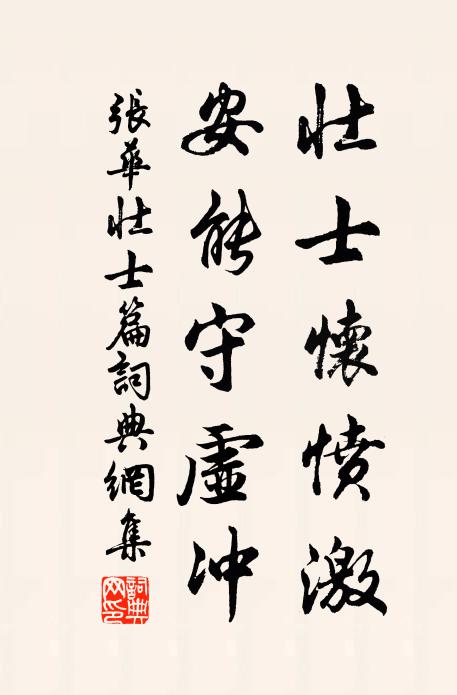 壮士懷憤激
安能守虛冲
張華壮士篇詞典網集
詞典
网印